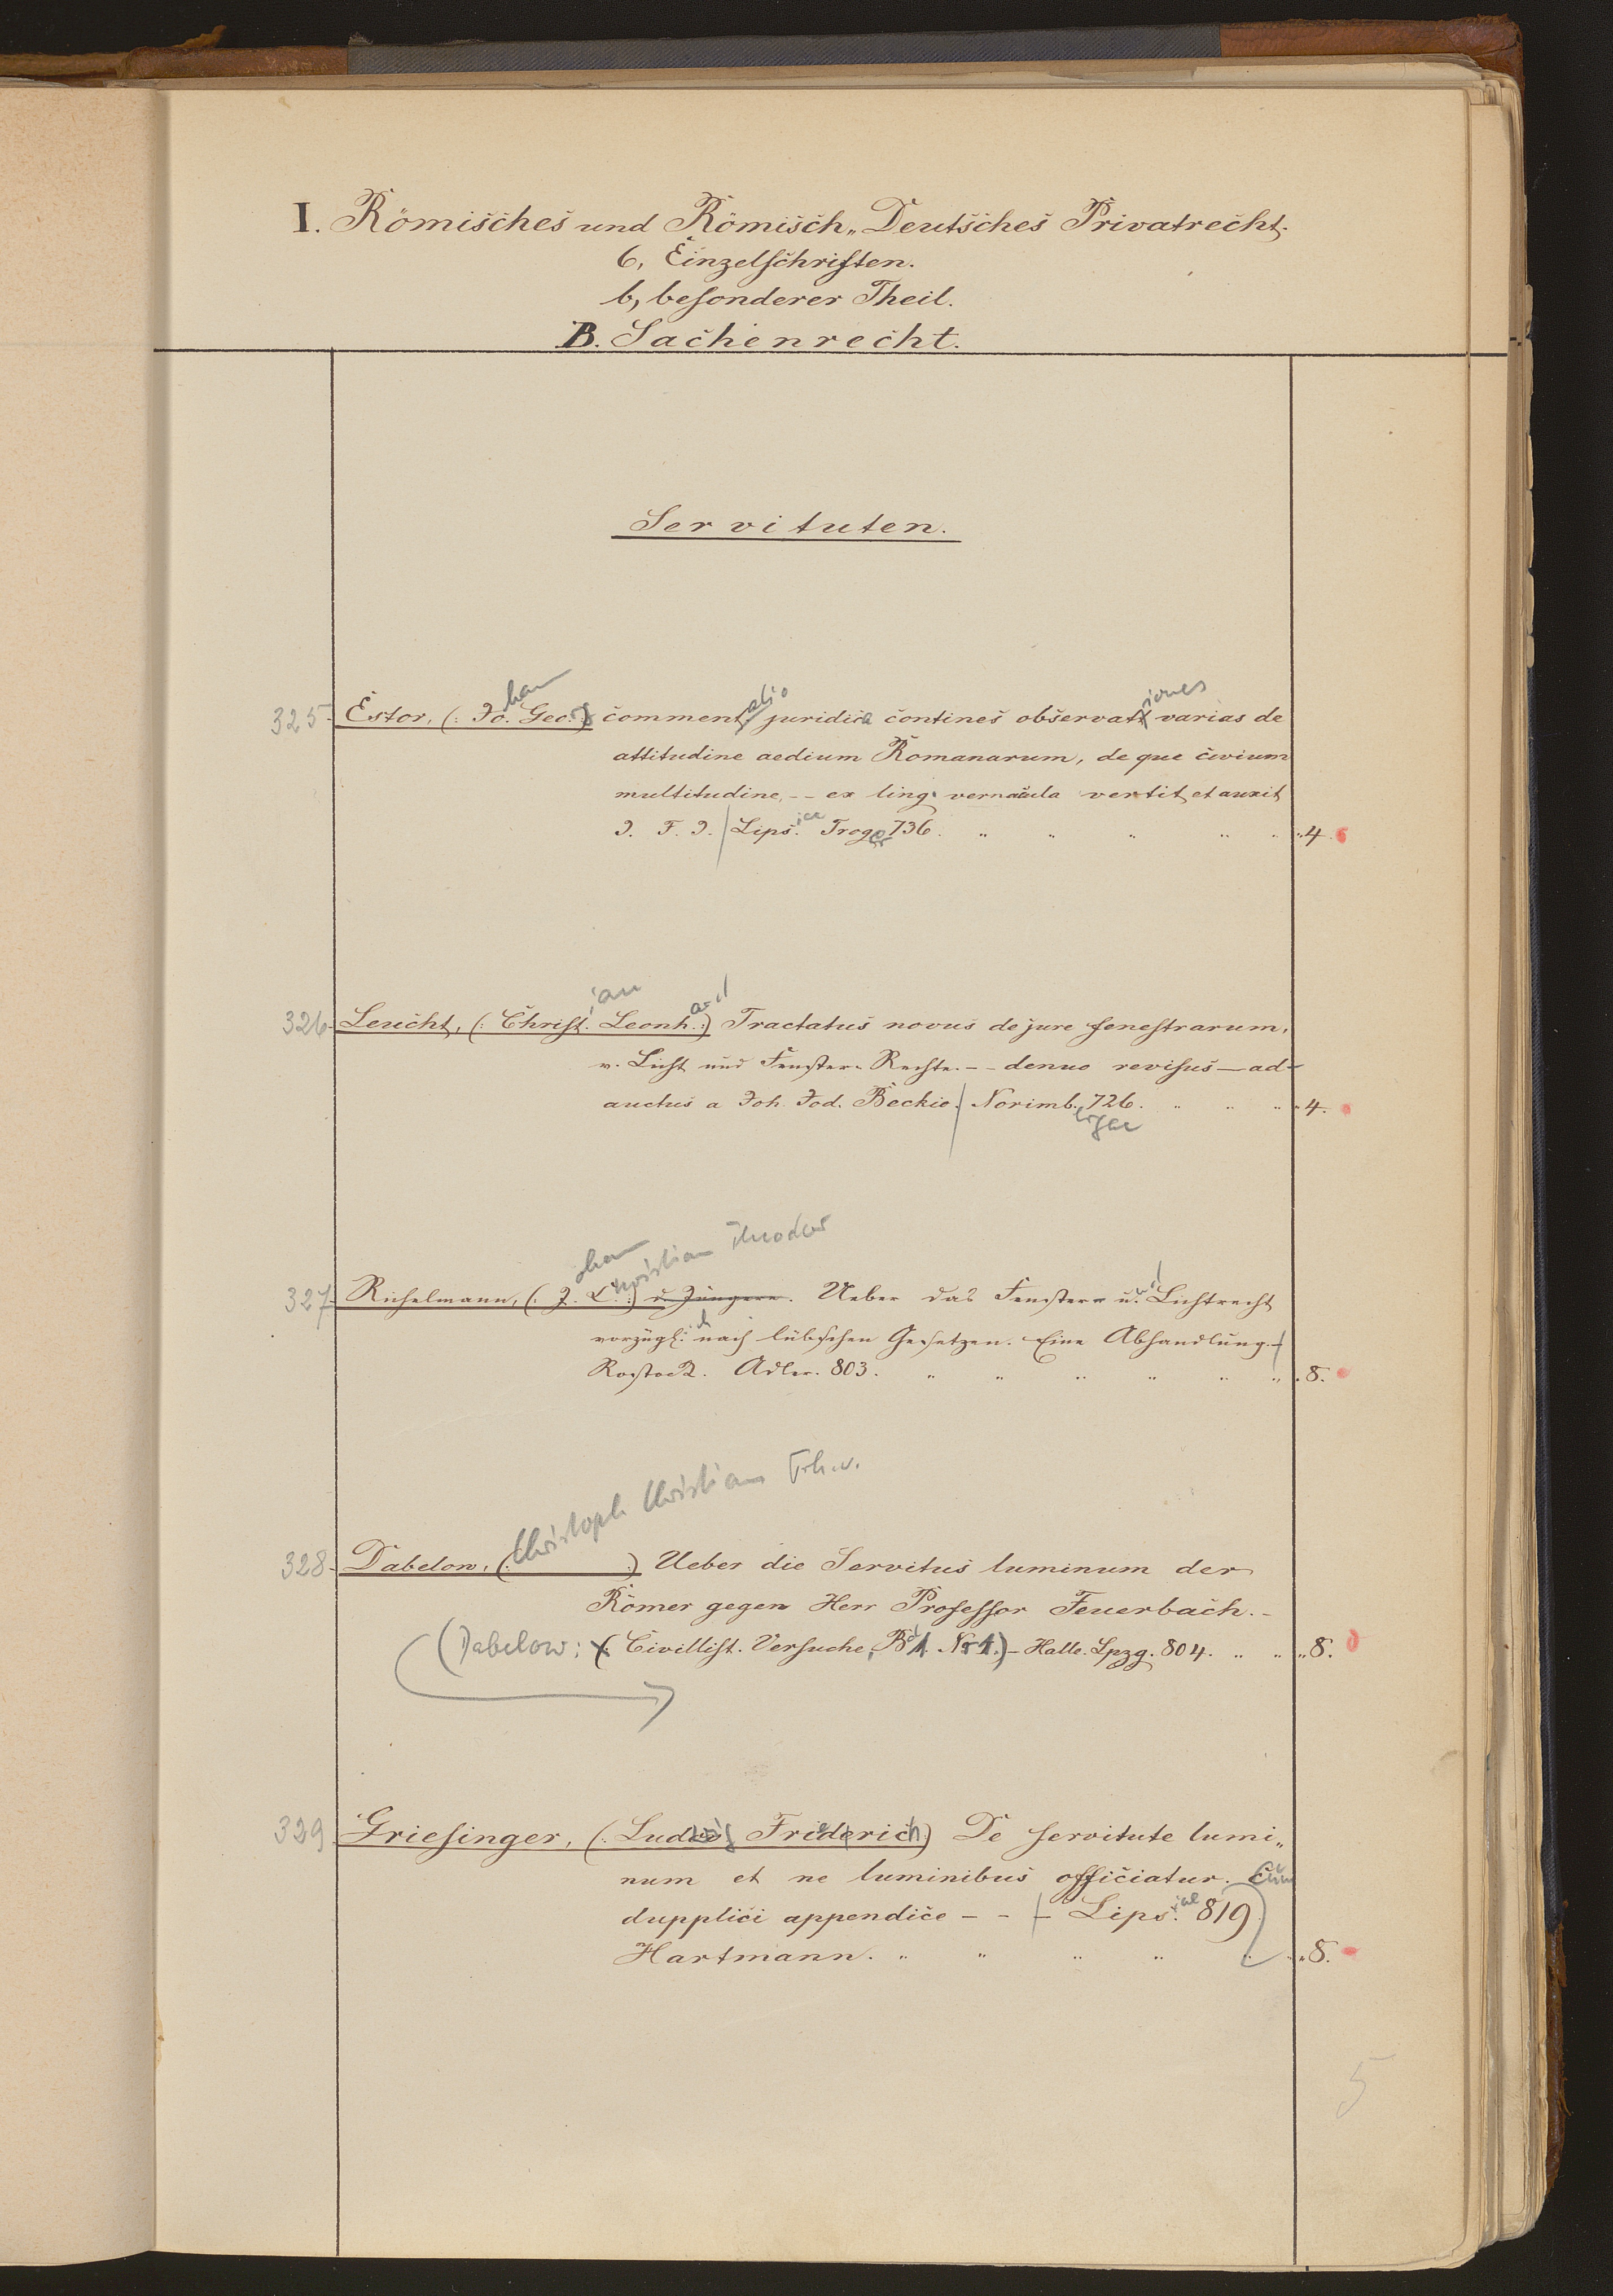 I. Römisches und Römisch„Deutsches Privatrecht.
6, Einzelschriften.
b, besonderer Theil.
B. Sachenrecht.
Servituten.
han alio iones
325. Estor, (: Jo. Geo. :) comment. juridica contines observat. varias de
attitudine aedium Romanarum, de que civium
multitudine, -- ex ling. vernacula vertit et auxit
J. F. J. / Lips.iae Troger 736. „ „ „ „ „ „ 4.
ian ard
326. Leucht, (: Christ. Leonh. :) Tractatus novus de jure fenestrarum,
v. Licht und Fenster-Rechte. -- denuo revisus — ad-
auctus a Joh. Jod. Beckio. / Norimb. 726. „ „ „ 4.
ergae
ohan Christian Theodor
327. Richelmann, (: J. C. :) d. Jüngere. Ueber das Fenster- u. Lichtrecht
vorzügl. nach lübschen Gesetzen. Eine Abhandlung. -
Rostock. Adler. 803. „ „ „ „ „ „ 8.
Christoph Christian Frh. v.
328. Dabelow, (: :) Ueber die Servitus luminum der
Römer gegen Herr Professor Feuerbach. -
(Dabelow: (: Civillist. Versuche, Bd 1. Nr 1.) - Halle. Lpzg. 804. „ „ „ 8.
329. Griesinger, (: Ludwig Friederich) De servitute lumi„
num et ne luminibus officiatur. Cum
dupplici appendice - - / - Lips.iae 819
Hartmann. „ „ „ „ „ „ 8.
5